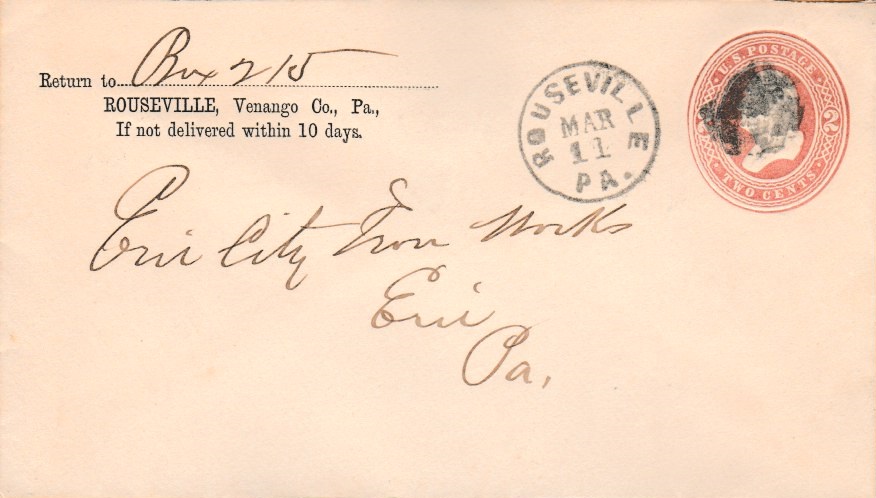 Return to Box 215
ROUSEVILLE, Venango Co., Pa.,
If not delivered within 10 days.
ROUSEVILLE
MAR
11
PA.
U.S. POSTAGE
2 2
TWO CENTS
Erie City Iron Works
Erie
Pa.